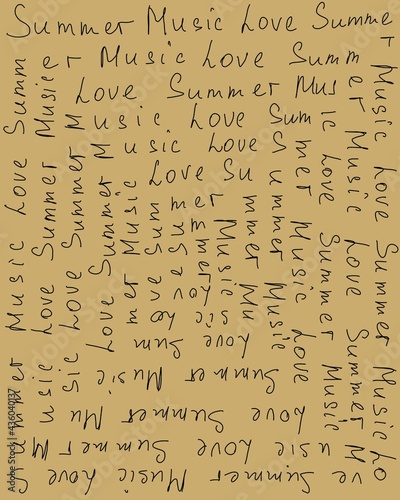 Summer Music Love Summe
r Music Love Summer Music Lo
ve Summer Music Love S
ummer Music Love Summ
er Music Love Summ
er Music Love Summer M
usic Love Summer M
usic Love Summer Music
Love Summer Mus
ic Love Summer Music
Love Summer Mu
sic Love Summer M
usic Love Sum
mer Music Love
Summer Music
Love Summer M
usic Love S
ummer Music
Love Sum
mer Music
Love Su
mmer Mu
sic Lo
ve Summ
er
Music
Love
Su
mmer
Adobe Stock | #436040137